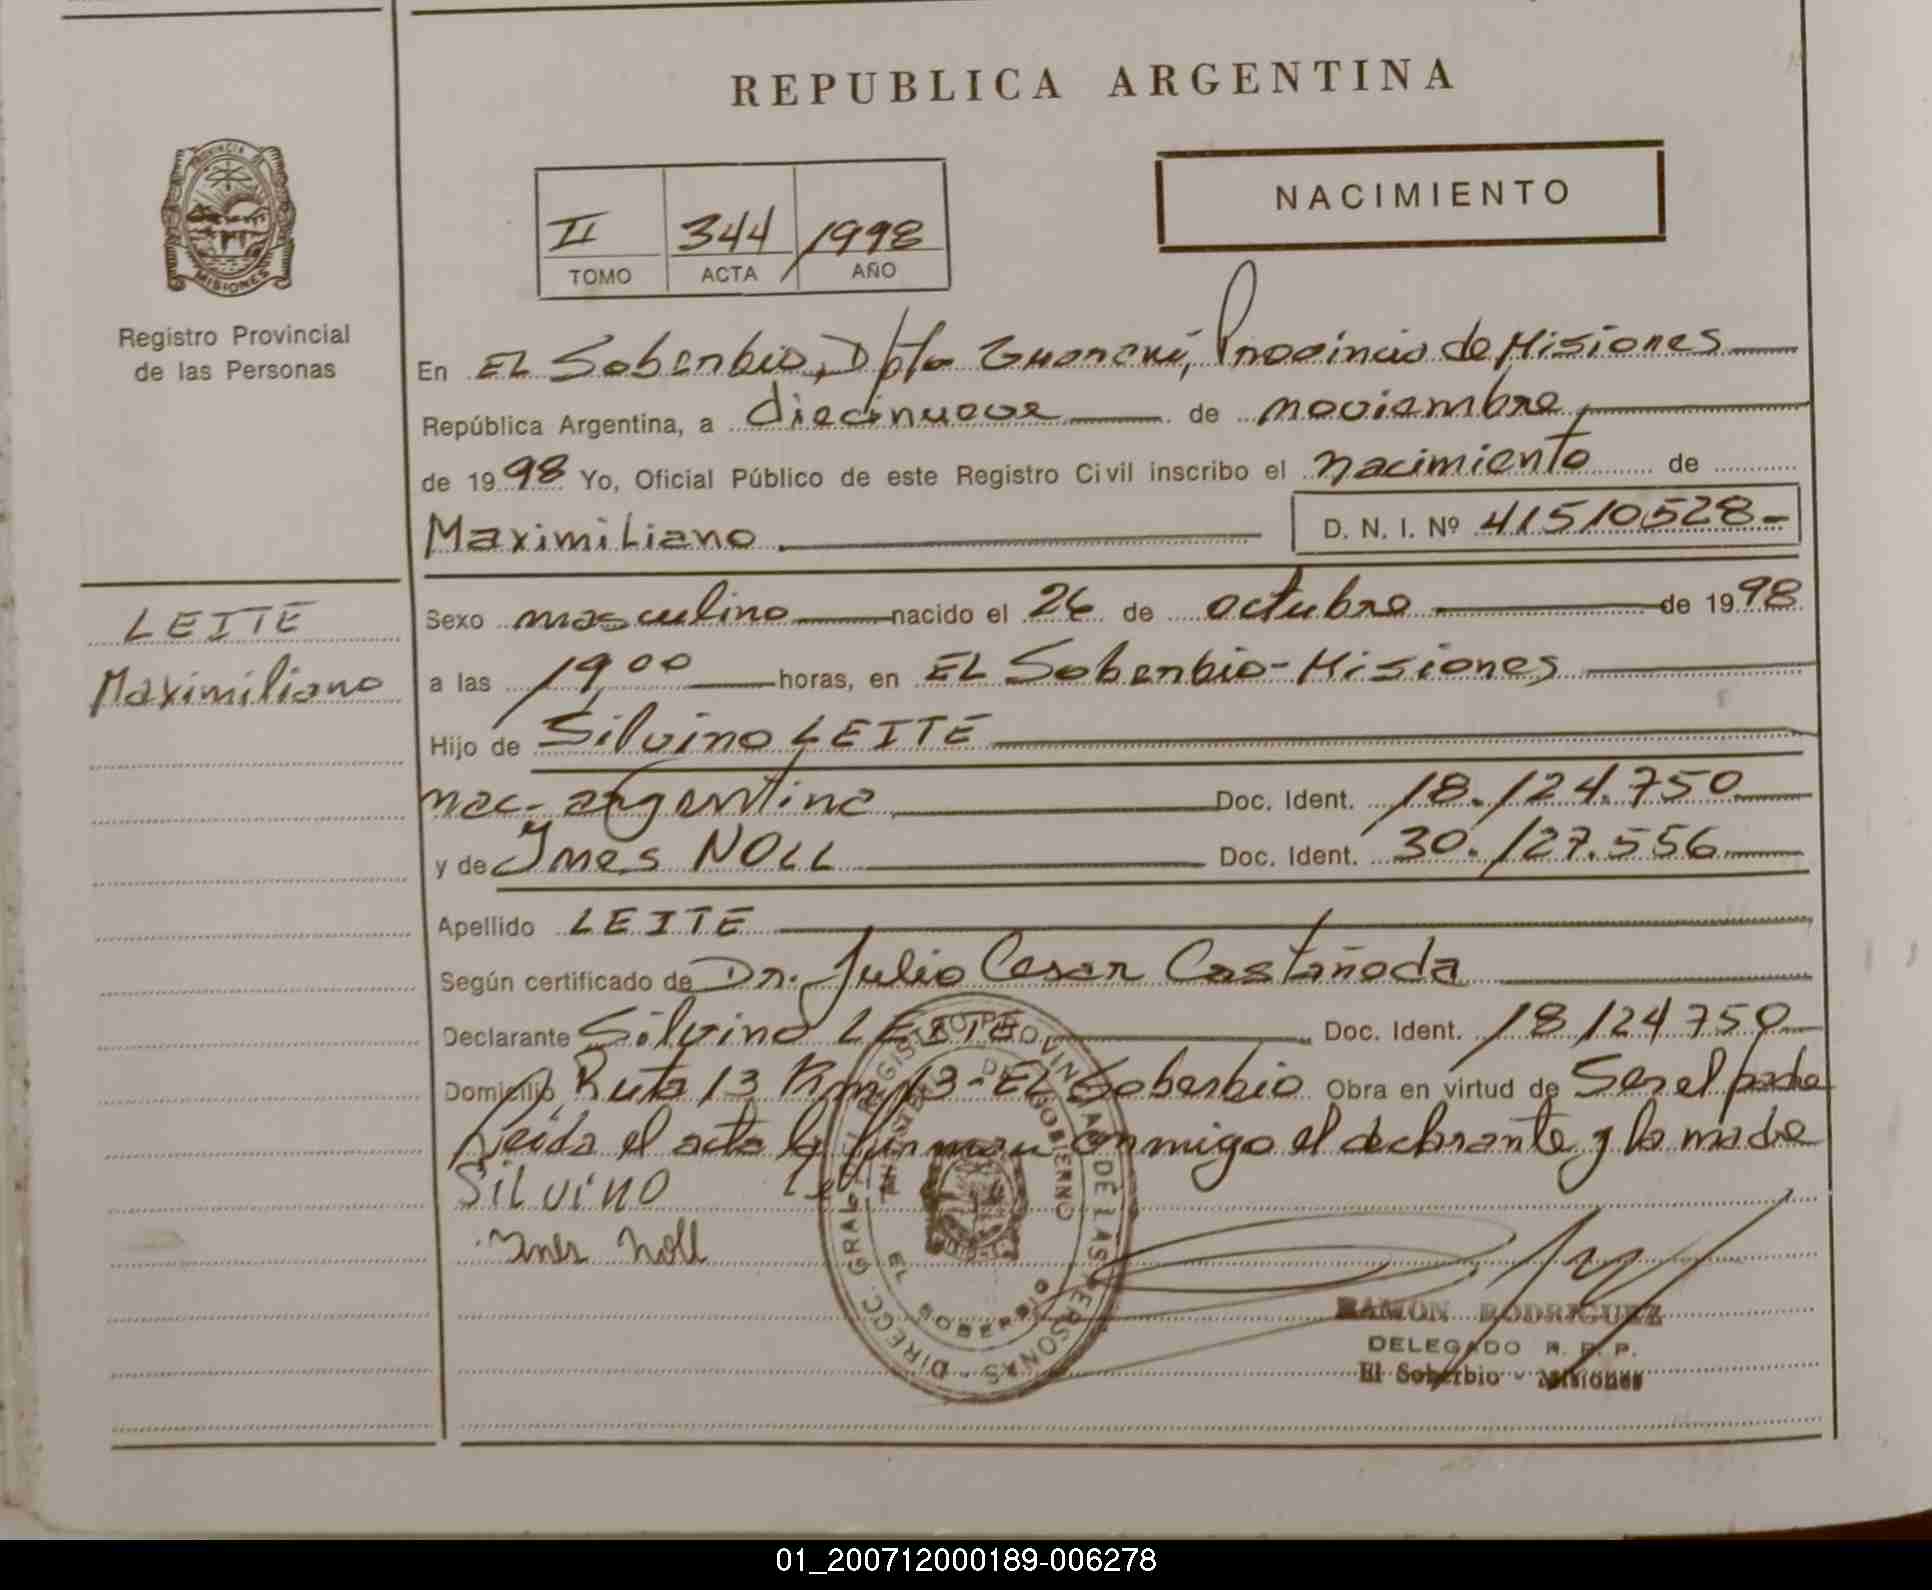 REPUBLICA ARGENTINA
NACIMIENTO
II 344 1998
TOMO ACTA AÑO
PROVINCIA DE
MISIONES
Registro Provincial
de las Personas
En EL Soberbio, Dpto Guaraní, Provincia de Misiones
República Argentina, a diecinueve de noviembre,
de 1998 Yo, Oficial Público de este Registro Civil inscribo el nacimiento de
Maximiliano D. N. I. Nº 41510528-
LEITE
Maximiliano
Sexo masculino nacido el 26 de octubre de 1998
a las 19,00 horas, en EL Soberbio - Misiones
Hijo de Silvino LEITE
nac. argentina Doc. Ident. 18.124.750
y de Ynes NOLL Doc. Ident. 30.127.556
Apellido LEITE
Según certificado de Dr. Julio Cesar Castañeda
Declarante Silvino LEITE Doc. Ident. 18124750
Domicilio Ruta 13 Km 13 - EL Soberbio Obra en virtud de Ser el padre
Leída el acta la firman conmigo el declarante y la madre
Silvino
Ynes Noll
DIRECC. GRAL. REGISTRO PROVINCIAL DE LAS PERSONAS
DE GOBIERNO
EL SOBERBIO
RAMON RODRIGUEZ
DELEGADO R. P. P.
El Soberbio - Misiones
01_200712000189-006278